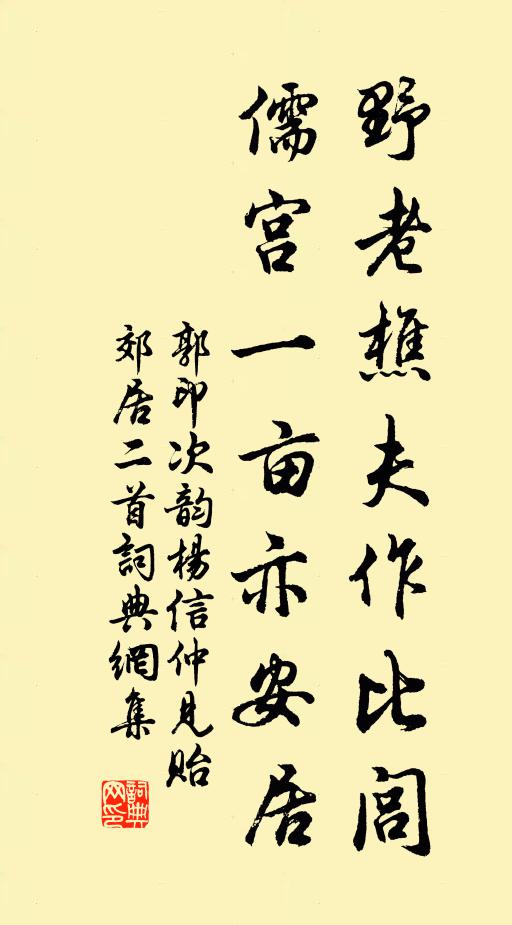 野老樵夫作比閭
儒宫一亩亦安居
郭印次韵楊信仲見貽
郊居二首詞典網集
詞典網印